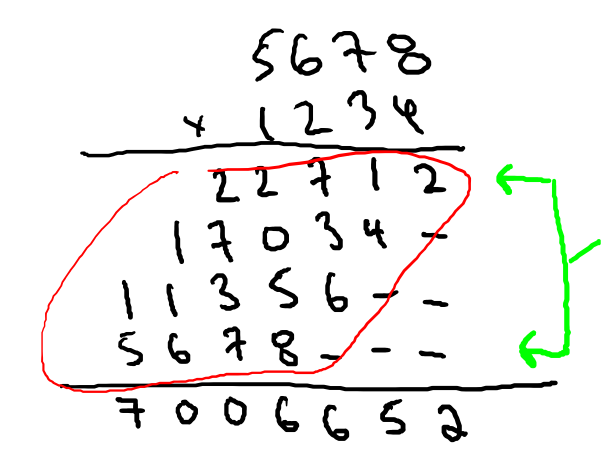 5678
× 1234
22712
17034 -
11356 - -
5678 - - -
7006652